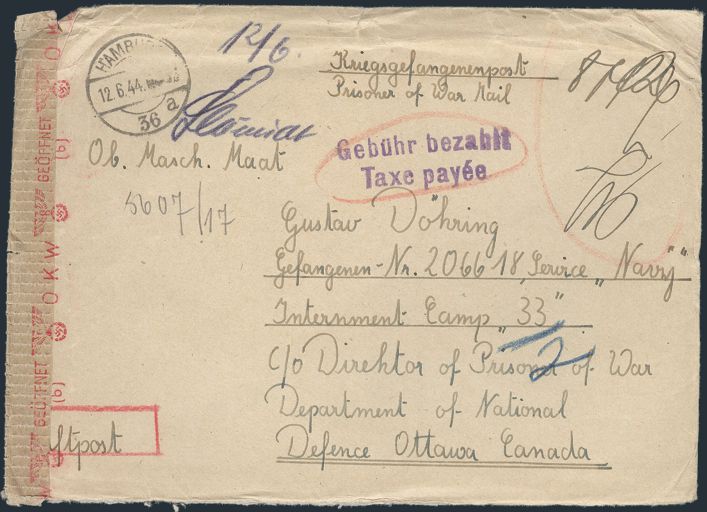 12/6.
Kriegsgefangenenpost
Prisoner of War Mail
HAMBU
12.6.44.
36 a
Schmidt
Gebühr bezahlt
Taxe payée
Ob. Masch. Maat
5607/17
Gustav Döhring
Gefangenen-Nr. 2066 18, Service „Navy"
Internment Camp „33"
2
c/o Direktor of Prisoner of War
Department of National
Defence Ottawa Canada
ftpost
OKW
GEÖFFNET
(b)
OKW
GEÖFFNET
(b)